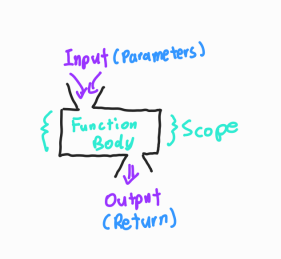 Input (Parameters)
{ Function } Scope
Body
Output
(Return)